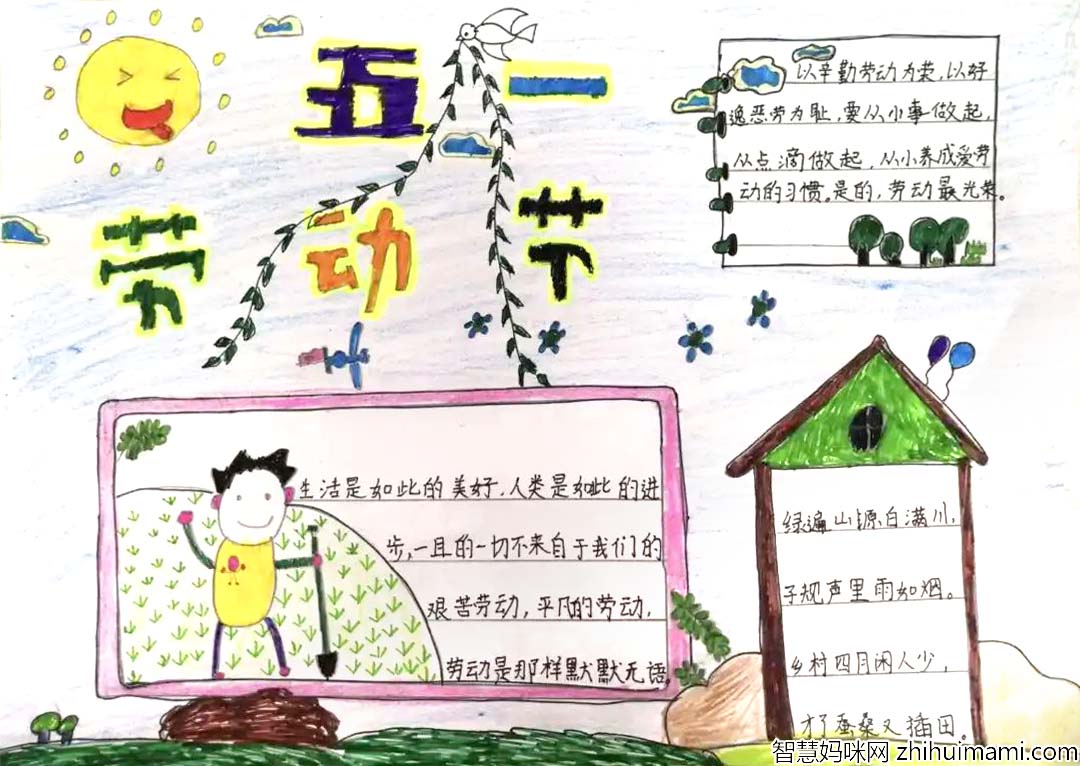 五一
劳动节
以辛勤劳动为荣，以好
逸恶劳为耻，要从小事做起，
从点滴做起，从小养成爱劳
动的习惯。是的，劳动最光荣。
生活是如此的美好，人类是如此的进
步，一且的一切不来自于我们的
艰苦劳动，平凡的劳动，
劳动是那样默默无语
绿遍山塬白满川，
子规声里雨如烟。
乡村四月闲人少，
才了蚕桑又插田。
智慧妈咪网 zhihuimami.com